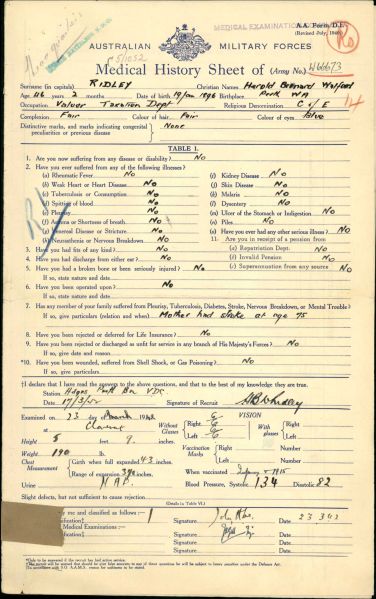 MEDICAL EXAMINATION
A.A. Form D.2.
(Revised July, 1940)
AUSTRALIAN MILITARY FORCES
Medical History Sheet of (Army No.) W66673
Surname (in capitals) RIDLEY Christian Names Harold Bernard Walford
Age 46 years 2 months Date of birth 19/Jan 1896 Birthplace Perth WA
Occupation Valuer Taxation Dept Religious Denomination C of E
Complexion Fair Colour of hair Fair Colour of eyes blue
Distinctive marks, and marks indicating congenital peculiarities or previous disease None
TABLE I.
1. Are you now suffering from any disease or disability? No
2. Have you ever suffered from any of the following illnesses?
(a) Rheumatic Fever No
(b) Weak Heart or Heart Disease No
(c) Tuberculosis or Consumption No
(d) Spitting of blood No
(e) Pleurisy No
(f) Asthma or Shortness of breath No
(g) Venereal Disease or Stricture No
(h) Neurasthenia or Nervous Breakdown No
(i) Kidney Disease No
(j) Skin Disease No
(k) Malaria No
(l) Dysentery No
(m) Ulcer of the Stomach or Indigestion No
(n) Piles No
(o) Have you ever had any other serious illness? No
3. Have you had fits of any kind? No
4. Have you had discharge from either ear? No
5. Have you had a broken bone or been seriously injured? No
If so, state nature and date
6. Have you been operated upon? No
If so, state nature and date
11. Are you in receipt of a pension from
(a) Repatriation Dept. No
(b) Invalid Pension No
(c) Superannuation from any source No
7. Has any member of your family suffered from Pleurisy, Tuberculosis, Diabetes, Stroke, Nervous Breakdown, or Mental Trouble?
If so, give particulars (relation and when) Mother had stroke at age 75 No
8. Have you been rejected or deferred for Life Insurance? No
9. Have you been rejected or discharged as unfit for service in any branch of His Majesty's Forces? No
If so, give date and reason
*10. Have you been wounded, suffered from Shell Shock, or Gas Poisoning? No
If so, give particulars
†I declare that I have read the answers to the above questions, and that to the best of my knowledge they are true.
Station Perth Bn VDC
Date 17/3/42 Signature of Recruit
Examined on 23 day March 1942
at Claremont
Height 5 feet 9 inches
Weight 190 lb.
Chest Measurement
Girth when full expanded 43 inches
Range of expansion inches
Urine N.A.D.
VISION
Without Glasses Right 6
Left 6
With glasses Right
Left
Vaccination Marks Right
Left
When vaccinated 1915
Blood Pressure, Systolic 134 Diastolic 82
Slight defects, but not sufficient to cause rejection
(Details in Table VI.)
my me and classified as follows:— 1
Classification] Signature Date 23 3 42
Medical Examinations:— Signature Date
Classification] Signature Date
*Only to be answered if the recruit has had active service.
†The recruit will be warned that should he give false answers to any of these questions he will be subject to heavy penalties under the Defence Act.